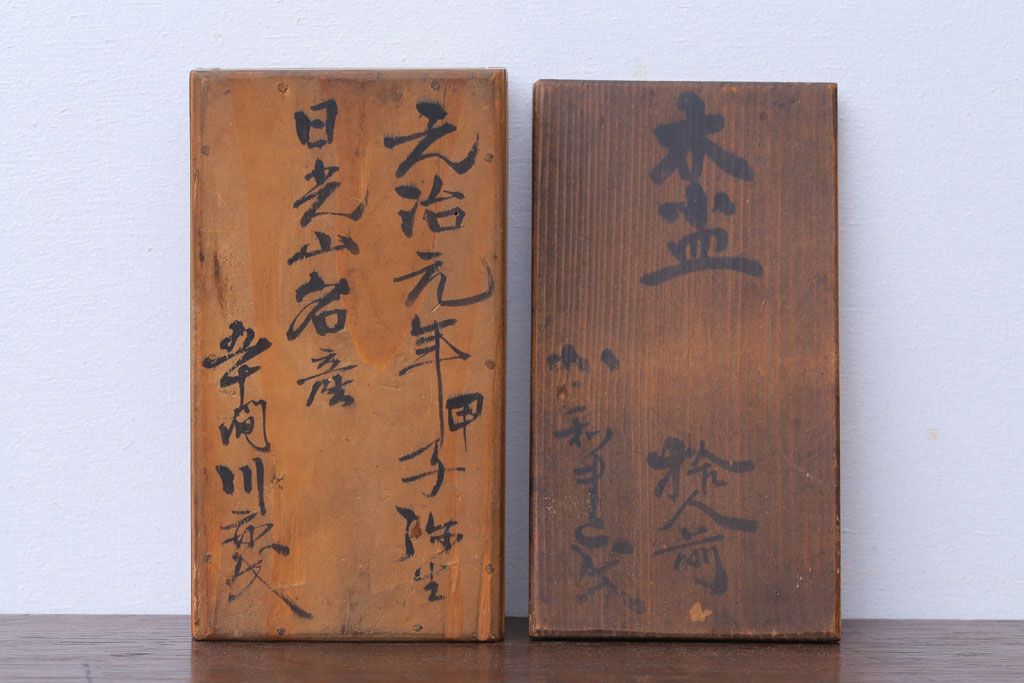 元治元年甲子弥生
日光山名産
五十間川
木盃
拾人前